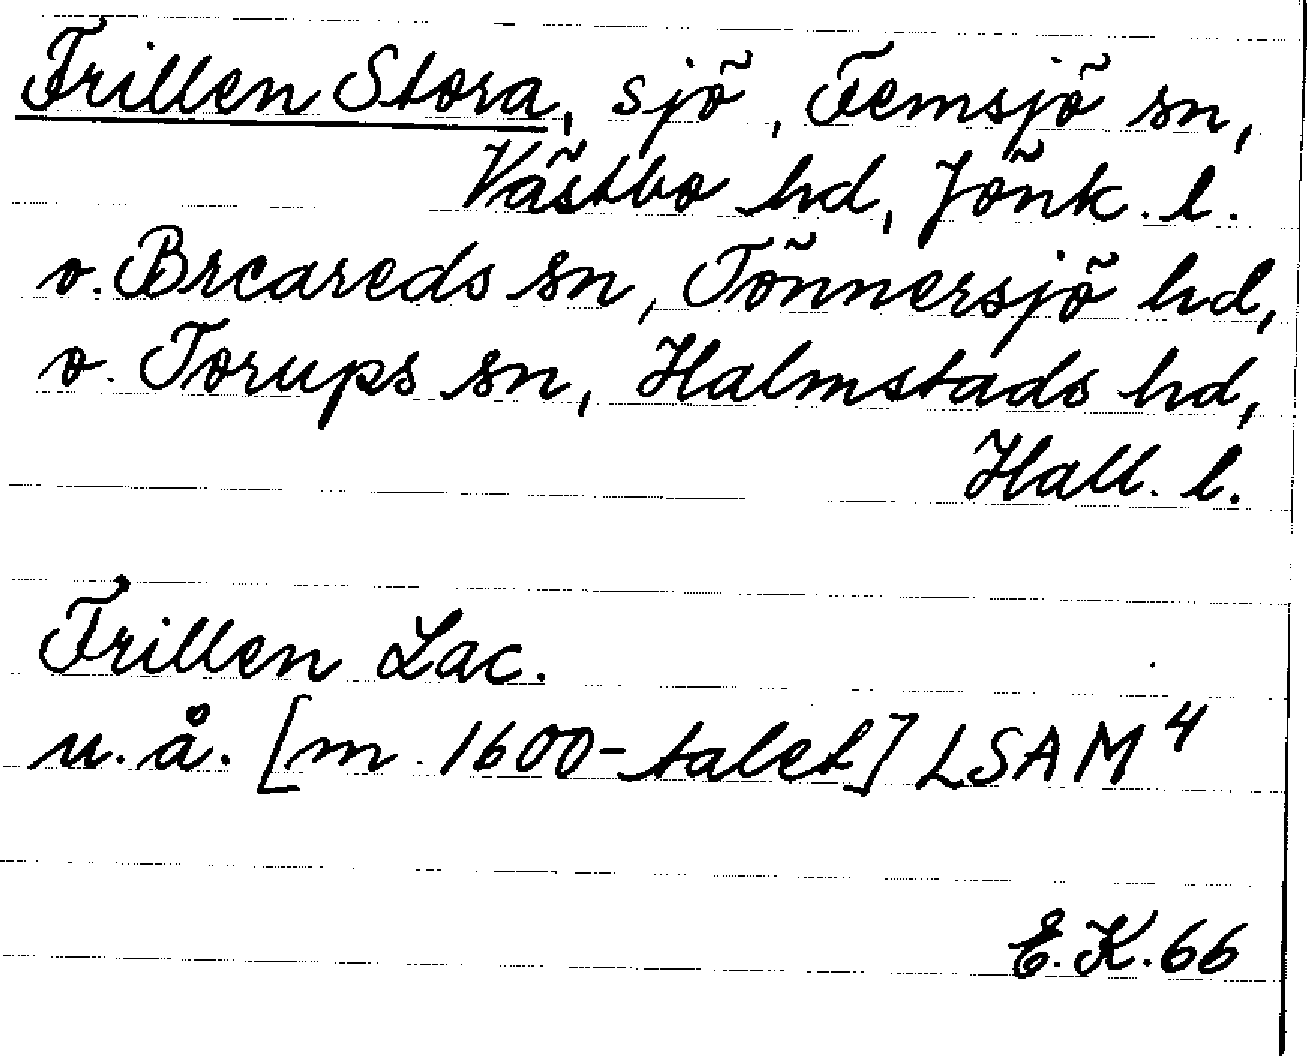 Frillen Stora, sjö, Femsjö sn,
Västbo hd, Jönk. l.
o. Breareds sn, Tönnersjö hd,
o. Torups sn, Halmstads hd,
Hall. l.
Frillen Lac.
u. å. [m. 1600-talet] LSA M⁴
E.K. 66